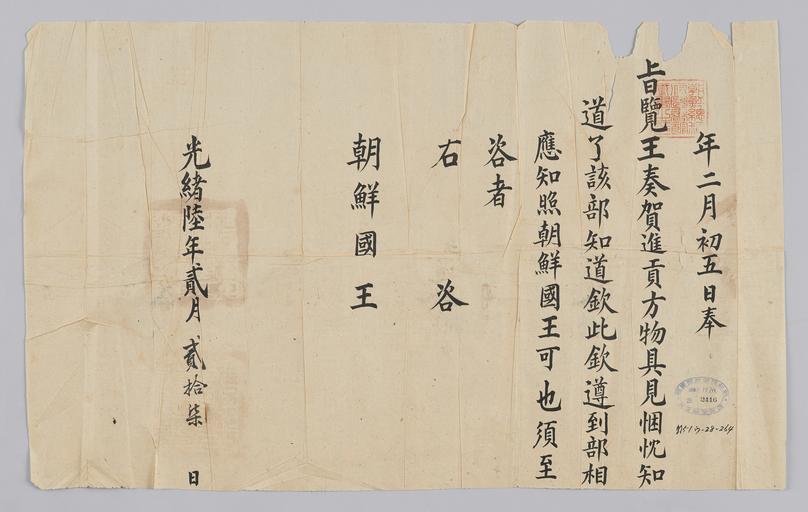 年二月初五日奉
旨覽王奏賀進貢方物具見悃忱知
道了該部知道欽此欽遵到部相
應知照朝鮮國王可也須至
咨者
右咨
朝鮮國王
光緒陸年貳月貳拾柒日
2416